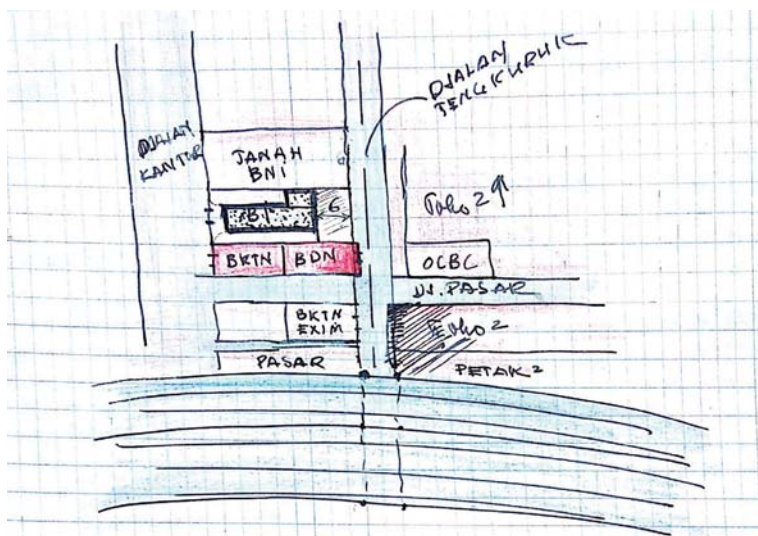 DJALAN
TENGKURUK
DJALAN
KANTOR
TANAH
BNI
Toko2
BI
6
BKTN
BDN
OCBC
DJ. PASAR
BKTN
EXIM
Toko2
PASAR
PETAK2